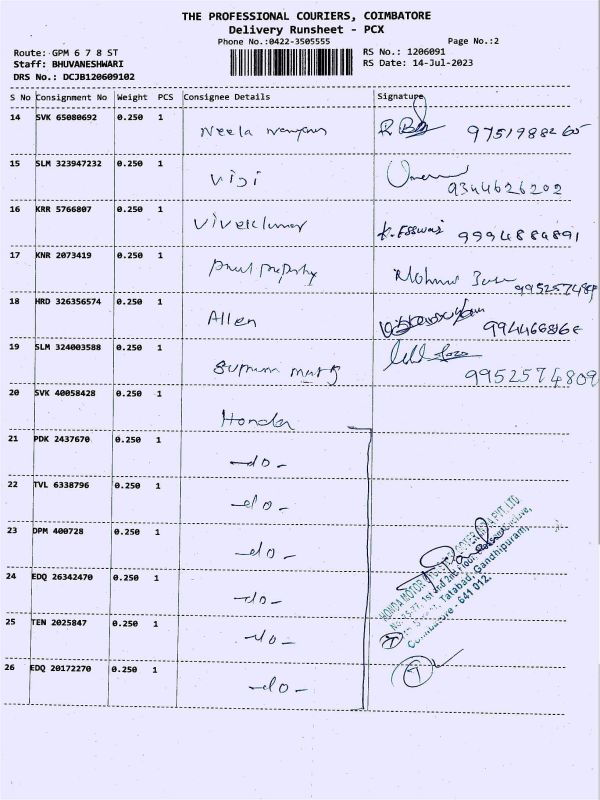 THE PROFESSIONAL COURIERS, COIMBATORE
Delivery Runsheet - PCX
Phone No.:0422-3505555 Page No.:2
Route: GPM 6 7 8 ST RS No.: 1206091
Staff: BHUVANESHWARI RS Date: 14-Jul-2023
DRS No.: DCJB120609102
S No Consignment No Weight PCS Consignee Details Signature
14 SVK 65080692 0.250 1 Neela
15 SLM 323947232 0.250 1 Viji 9344626202
16 KRR 5766807 0.250 1 Vivekkumar K. Esswari 9994884891
17 KNR 2073419 0.250 1
18 HRD 326356574 0.250 1 Allen
19 SLM 324003588 0.250 1 9952574809
20 SVK 40058428 0.250 1 Honda
21 PDK 2437670 0.250 1 -do-
22 TVL 6338796 0.250 1 -do-
23 DPM 400728 0.250 1 -do-
24 EDQ 26342470 0.250 1 -do-
25 TEN 2025847 0.250 1 -do-
26 EDQ 20172270 0.250 1 -do-
HONDA MOTOR PVT. LTD.
1st and 2nd Floor
Tatabad, Gandhipuram,
Coimbatore - 641 012.
7